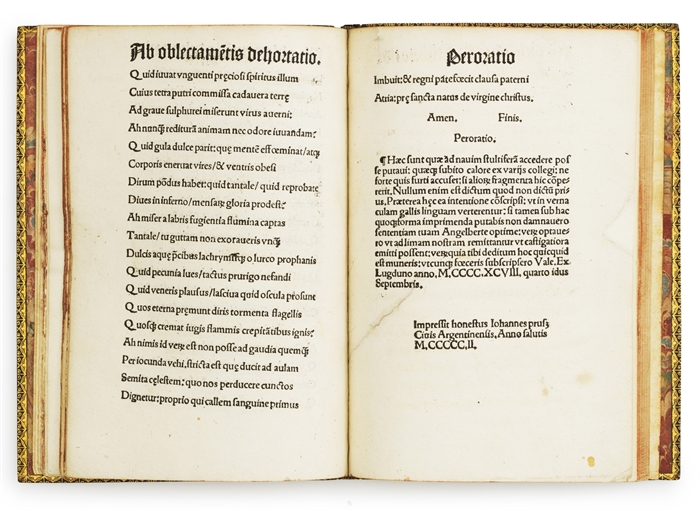 Ab oblectamẽtis dehortatio.
Quid iuuat vnguenti preciosi spiritus illum
Cuius tetra putri commissa cadauera terrę
Ad graue sulphurei miserunt virus auerni:
Ah nunꝗ̃ rediturã animam nec odore iuuandam?
Quid gula dulce parit: quę mentẽ effœminat/atꝗ
Corporis eneruat vires/& ventris obesi
Dirum põdus habet: quid tantale/quid reprobate
Diues in inferno/mensarũ gloria prodest?
Ah miser a labris fugientia flumina captas
Tantale/tu guttam non exoraueris vnꝗ̃
Dulcis aquę p̃cibus lachrymisꝗ o lurco prophanis
Quid pecunia lues/tactus prurigo nefandi
Quid veneris plausus/lasciua quid oscula prosunt
Quos eterna pręmunt diris tormenta flagellis
Quosꝗ cremat iugis flammis crepitãtibus ignis?
Ah nimis id verę est non posse ad gaudia quemꝗ̃
Per iocunda vehi, stricta est quę ducit ad aulam
Semita cęlestem: quo nos perducere cunctos
Dignetur: proprio qui callem sanguine primus
Peroratio
Imbuit: & regni patefœcit clausa paterni
Atria: prę sancta natus de virgine christus.
Amen. Finis.
Peroratio.
¶ Hæc sunt quæ ad nauim stultiferã accedere pos
se putaui: quæꝗ subito calore ex varijs collegi: ne
forte quis furti accuset: si alioꝝ fragmenta hic cõpe⸗
retit. Nullum enim est dictum quod non dictũ pri
us. Præterea hęc ea intentione cõscripsi: vt in verna
culam gallis linguam verterentur: si tamen sub hac
quoꝗ forma imprimenda putabis non damnauero
sententiam tuam Angelberte optime: veꝝ optaue
ro vt ad limam nostram remittantur vt castigatiora
emitti possent: veꝝ quia tibi deditum hoc quicquid
est muneris: vtcunꝗ fœceris subscripsero Vale. Ex
Lugduno anno. M.CCCC.XCVIII. quarto idus
Septembris.
Impressit honestus Iohannes prusꝫ
Ciuis Argentinensis, Anno salutis
M.CCCCC.II.